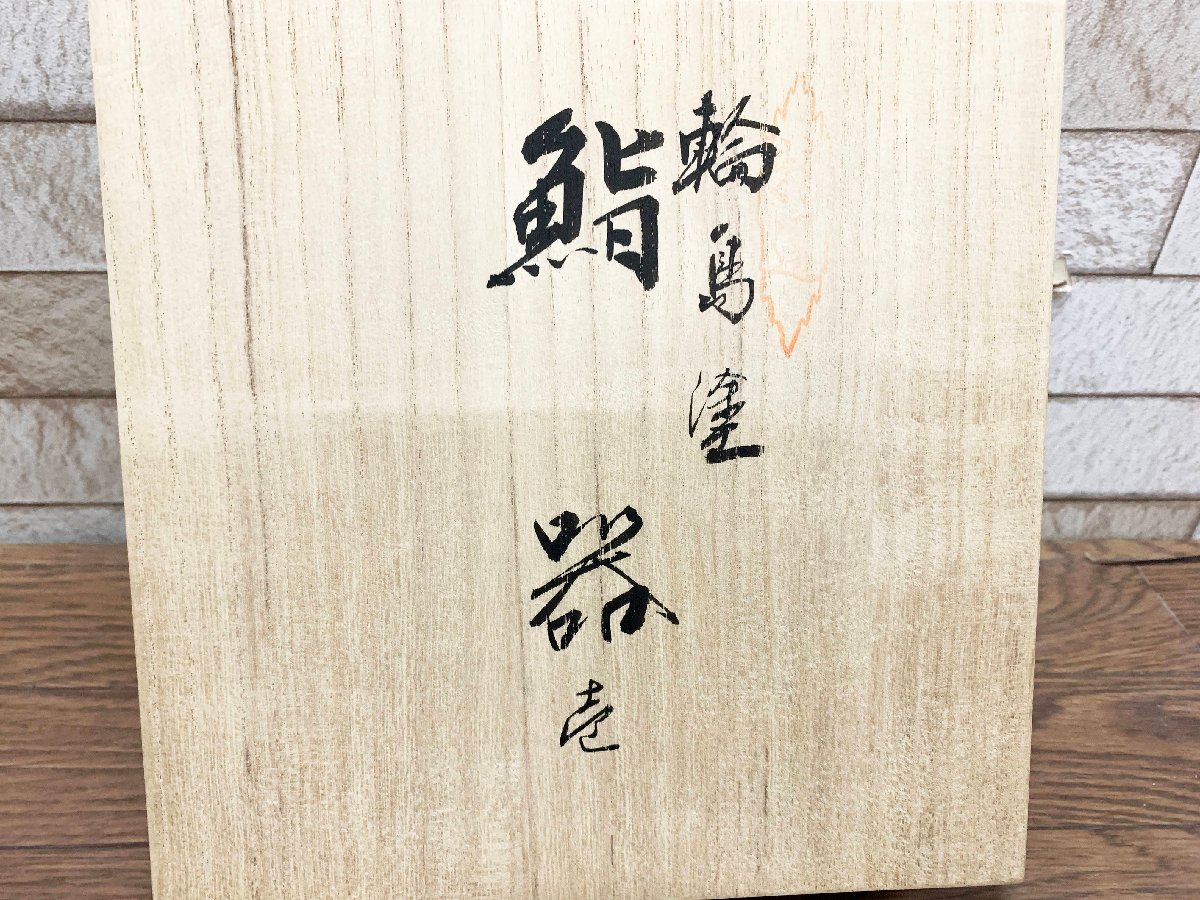 輪島塗
鮨器壱